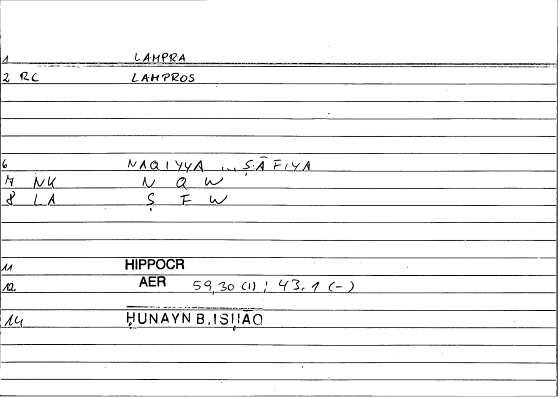 1 LAMPRA
2 RC LAMPROS
6 NAQIYYA ... ṢĀFIYA
7 NK N Q W
8 LA Ṣ F W
11 HIPPOCR
12 AER 59,30 (1) ; 43,1 (-)
14 ḤUNAYN B.ISḤĀQ